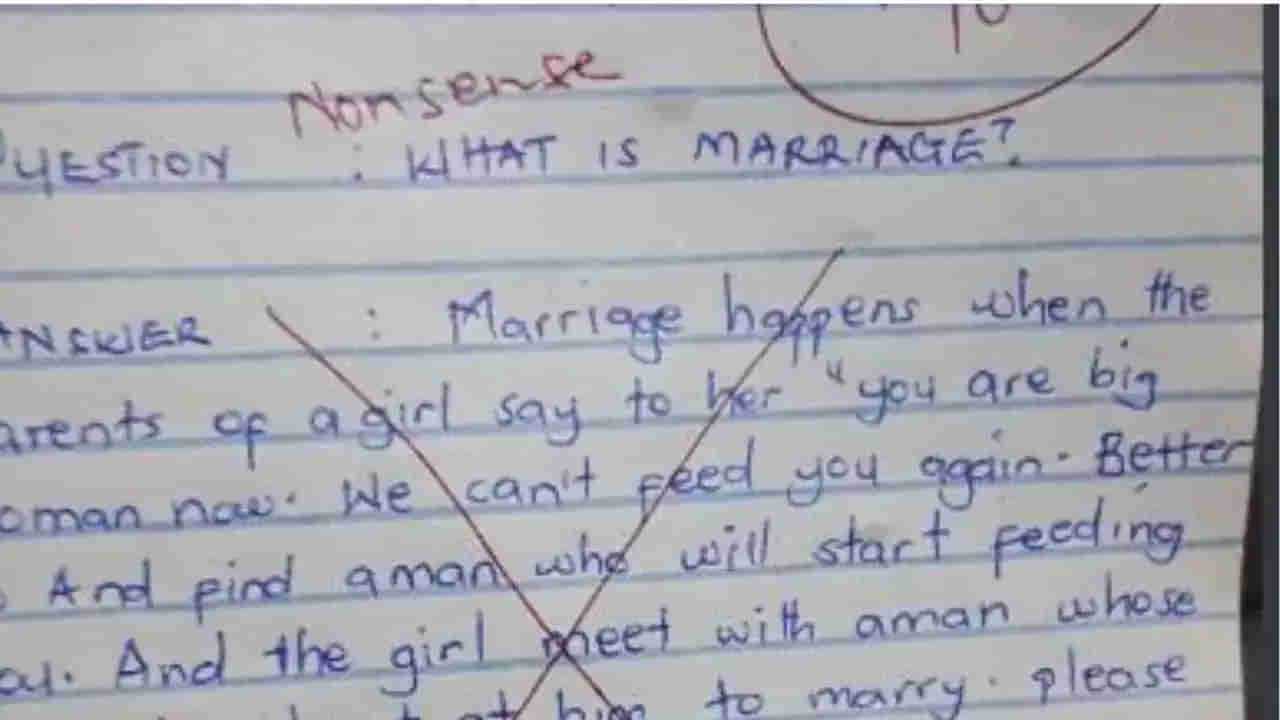 10
Nonsense
QUESTION : WHAT IS MARRIAGE?
ANSWER : Marriage happens when the
arents of a girl say to her "you are big
oman now. We can't feed you again. Better
And find a man who will start feeding
And the girl meet with aman whose
him to marry. please